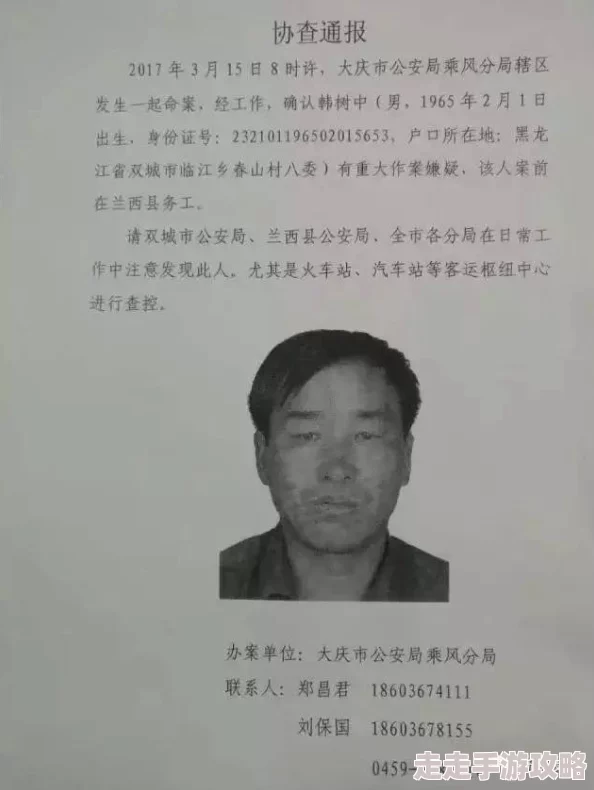 协查通报
2017 年 3 月 15 日 8 时许，大庆市公安局乘风分局辖区
发生一起命案，经工作，确认韩树中（男，1965 年 2 月 1 日
出生，身份证号：232101196502015653，户口所在地：黑龙
江省双城市临江乡春山村八委）有重大作案嫌疑，该人案前
在兰西县务工。
请双城市公安局、兰西县公安局、全市各分局在日常工
作中注意发现此人，尤其是火车站、汽车站等客运枢纽中心
进行查控。
办案单位：大庆市公安局乘风分局
联系人：郑昌君 18603674111
刘保国 18603678155
0459-
走走手游攻略